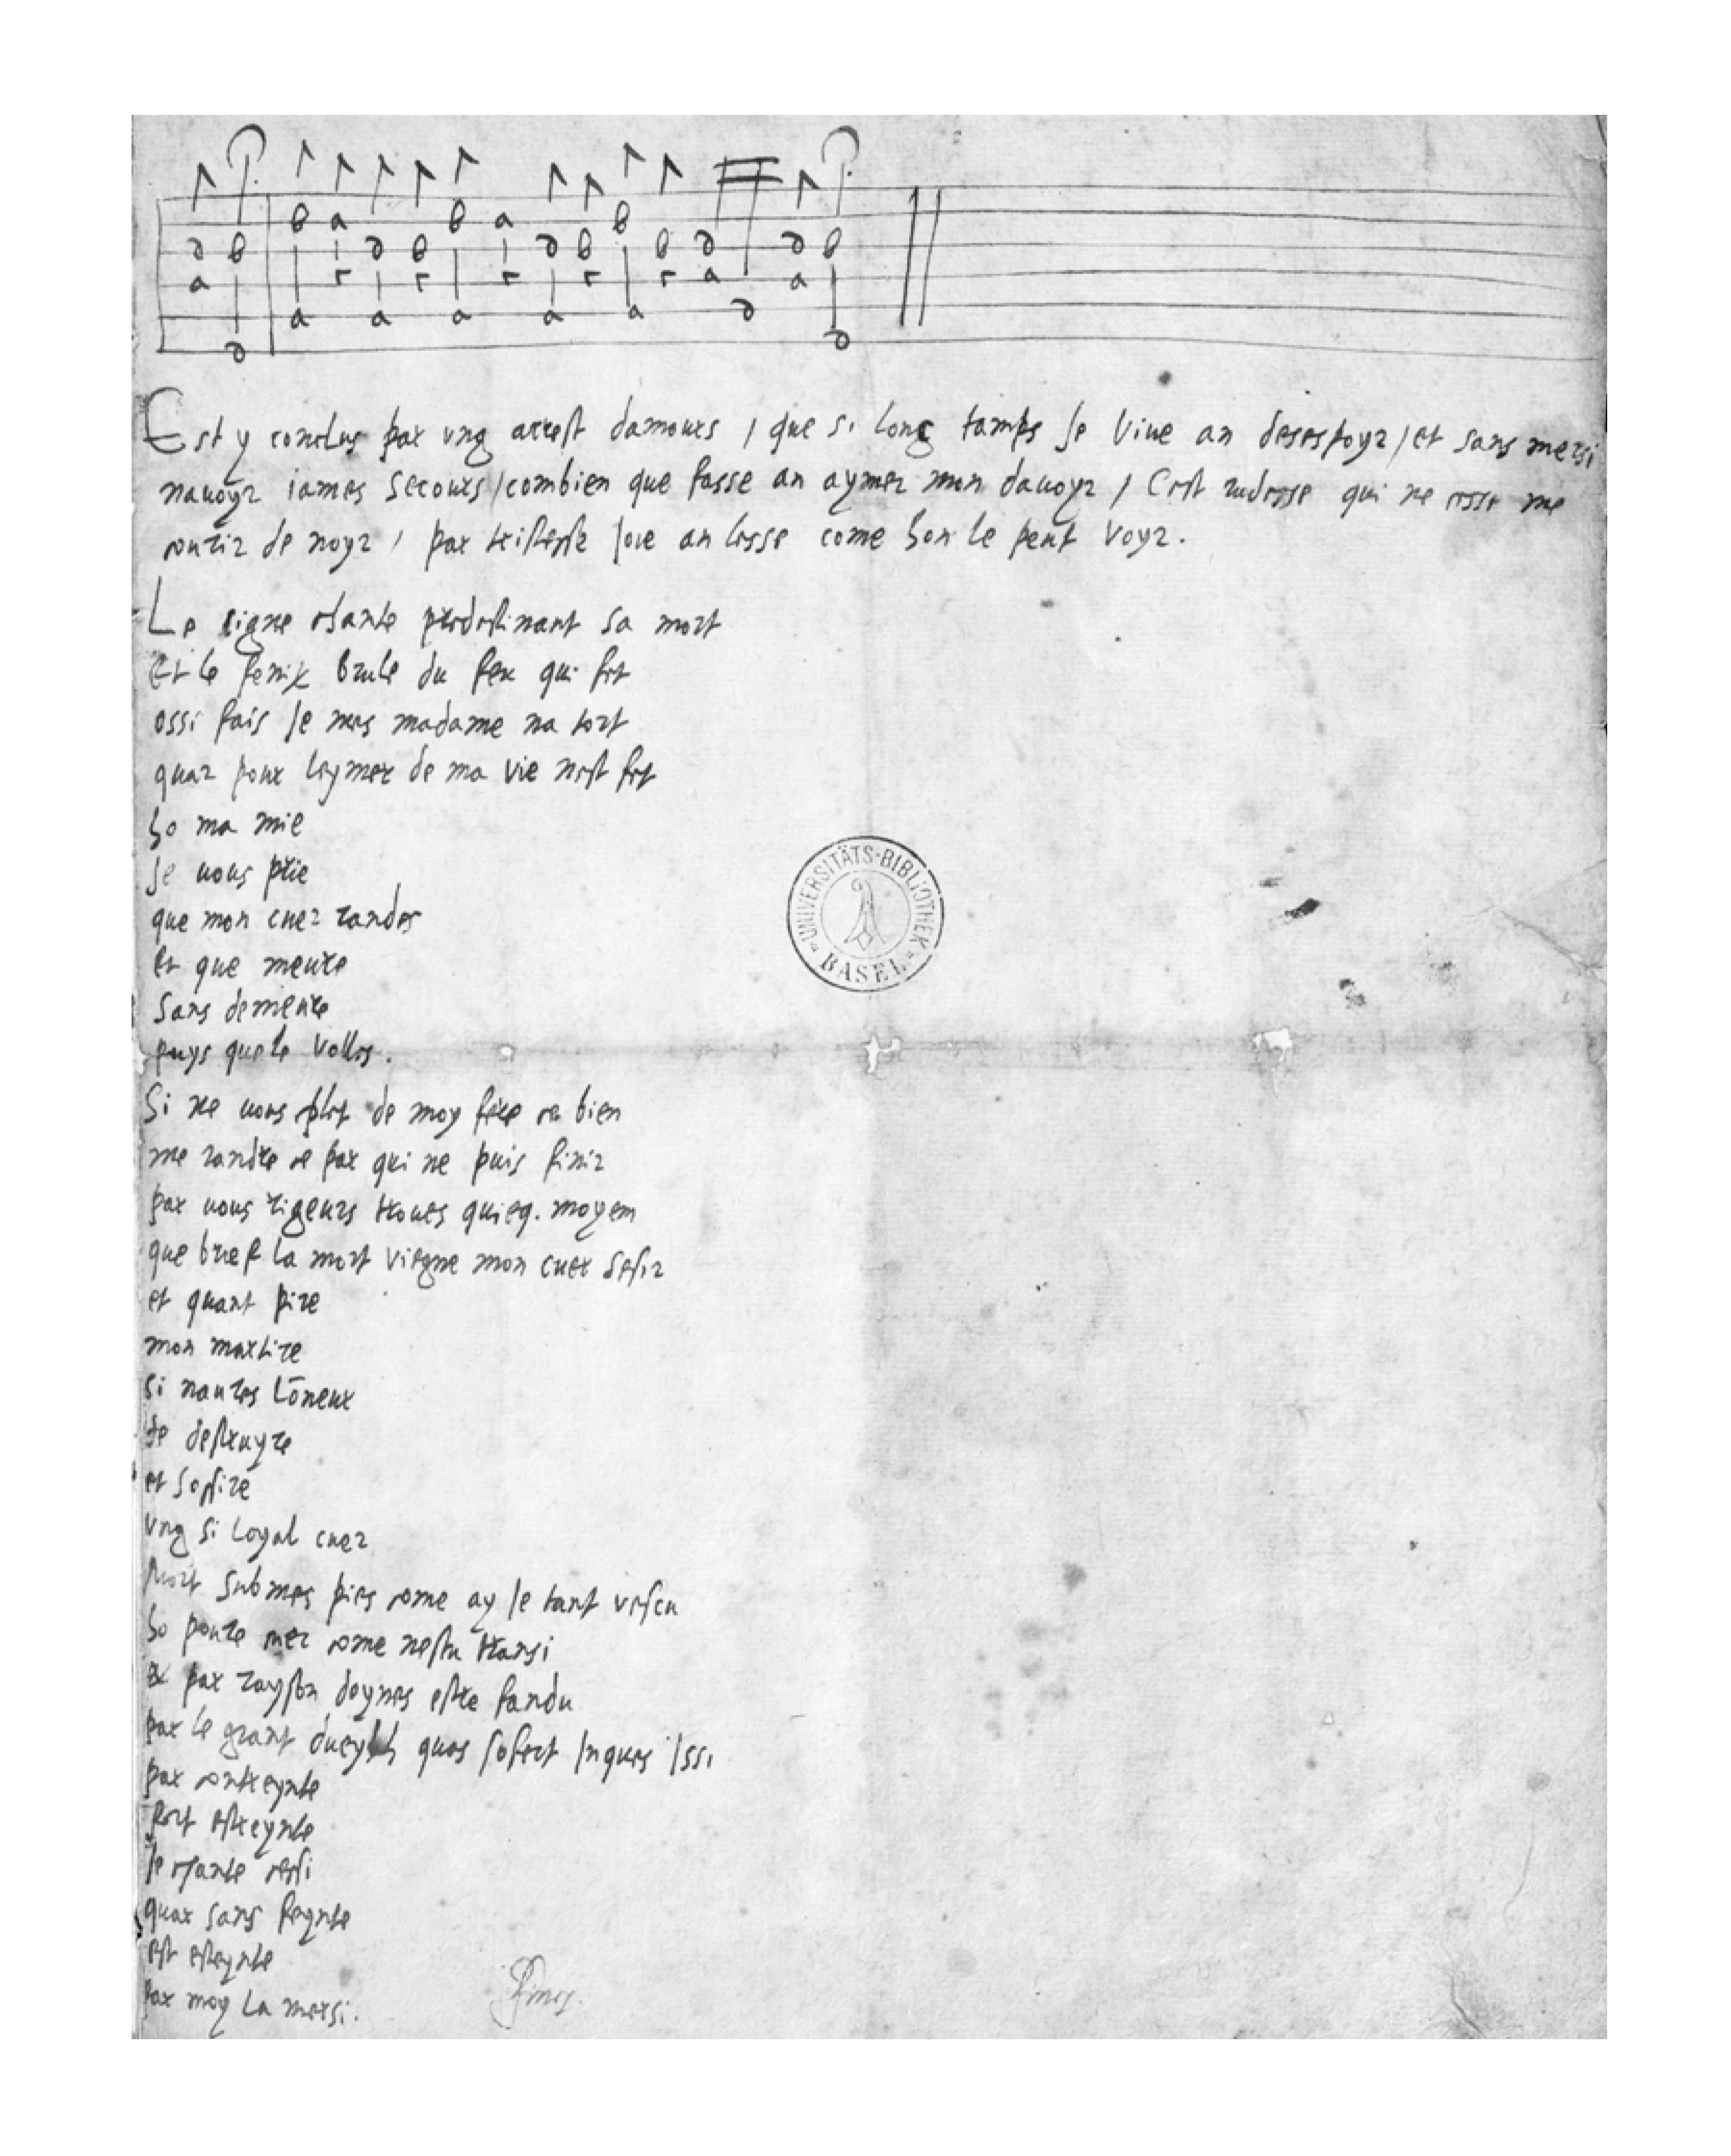 Est y conclus par ung arrest damours / que si long tamps Je vive an desespoyr / et sans mersi
navoyr iames secours / combien que fasse an aymer mon davoyr / Cest rudesse qui ne cesse me
contir de noyr / par tristesse Joie an lesse come hon le peut voyr.
Le signe chante predestinant sa mort
Et le fenix brule du feu qui fet
ossi fais Je mes madame na tort
quar pour leymer de ma vie nest fet
ho ma mie
Je vous prie
que mon cuer randes
et que meure
sans demeure
puys que le volles.
Si ne vous plet de moy fere ce bien
me randre ce par qui ne puis finir
par vous rigeurs troues quieq. moyem
que bref la mort viegne mon cuer sesir
et quant pire
mon martire
si naures lōneur
de destruyre
et sossire
ung si loyal cuer
Mort submes pies come ay Je tant vescu
ho poure cuer come nestu transi
par rayson doynes estre fandu
par le grant dueylh quas sofert Inques Issi
par contreynte
fort estreynte
Je chante cessi
quar sans feynte
est esteynte
par moy la mersi.
UNIVERSITÄTS-BIBLIOTHEK
BASEL